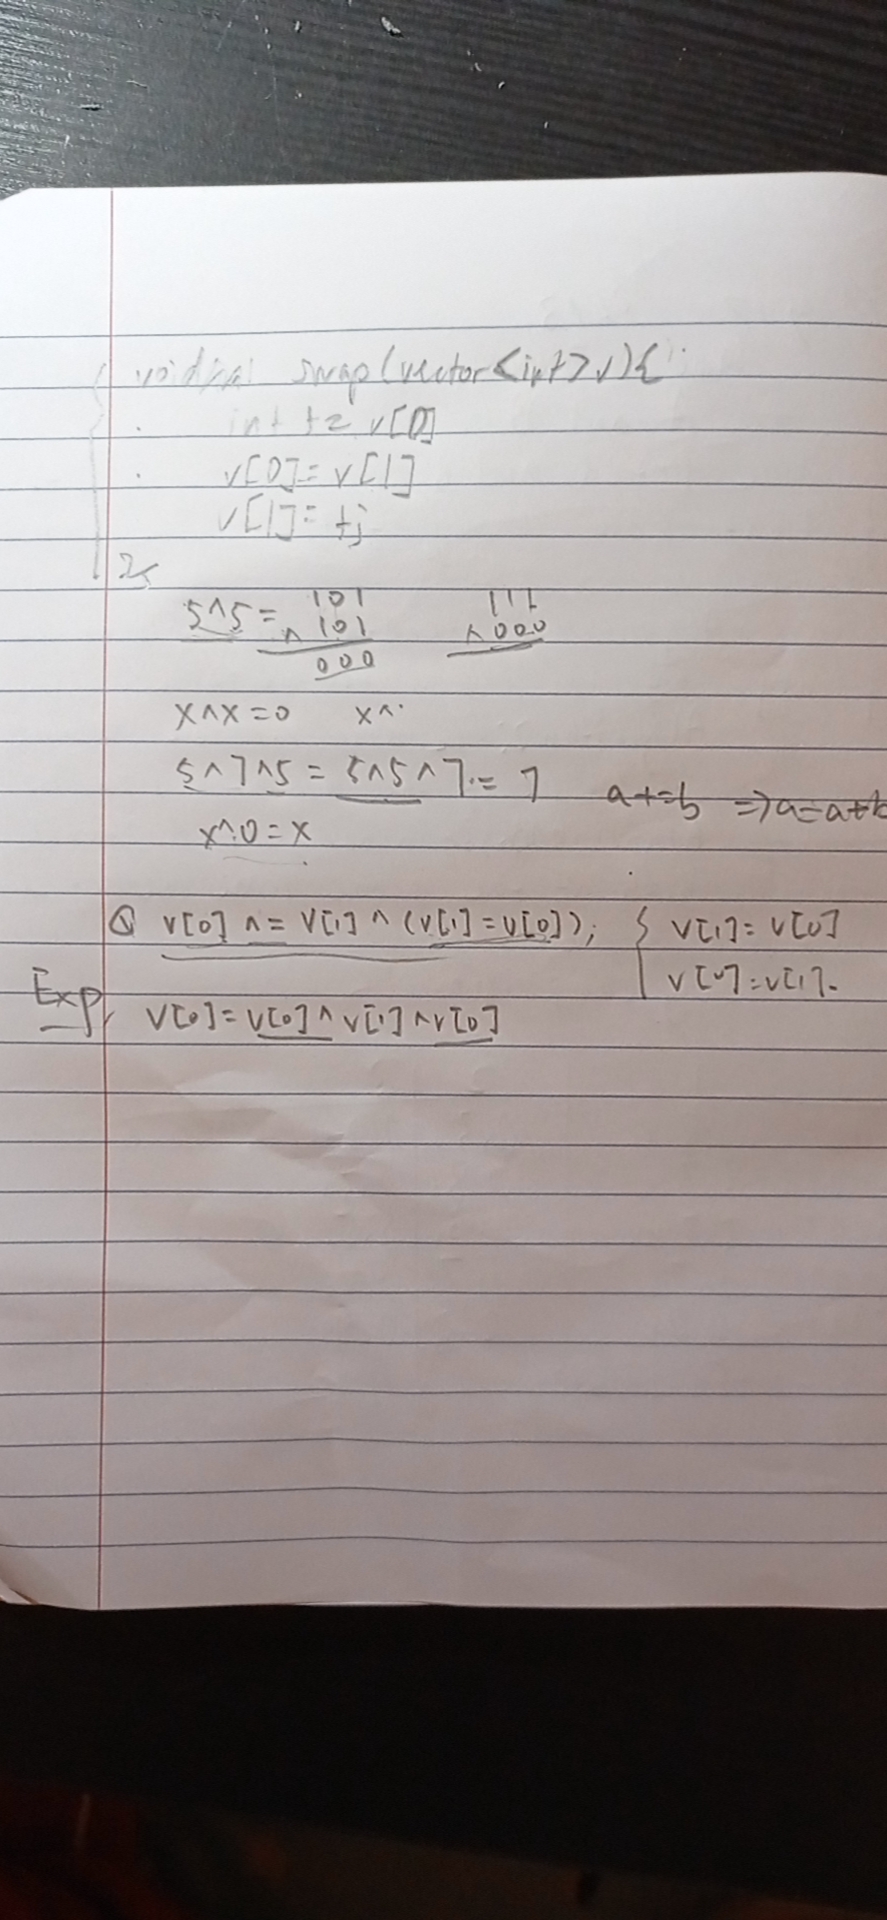 void swap(vector<int>v){
int t= v[0]
v[0]=v[1]
v[1]= t;
5^5= 101 111
^ 101 ^000
000
x^x=0 x^
5^7^5 = 5^5^7 = 7 a+=b =>a=a+b
x^0=x
Q v[0] ^= v[1] ^ (v[1]=v[0]); { v[1]= v[0]
v[0]=v[1].
Exp, v[0]=v[0]^v[1]^v[0]